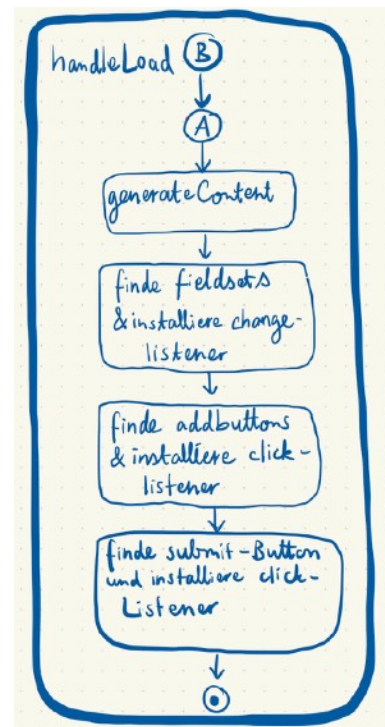 handleLoad B
A
generateContent
finde fieldsets
& installiere change-
listener
finde addbuttons
& installiere click-
listener
finde submit-Button
und installiere click-
Listener